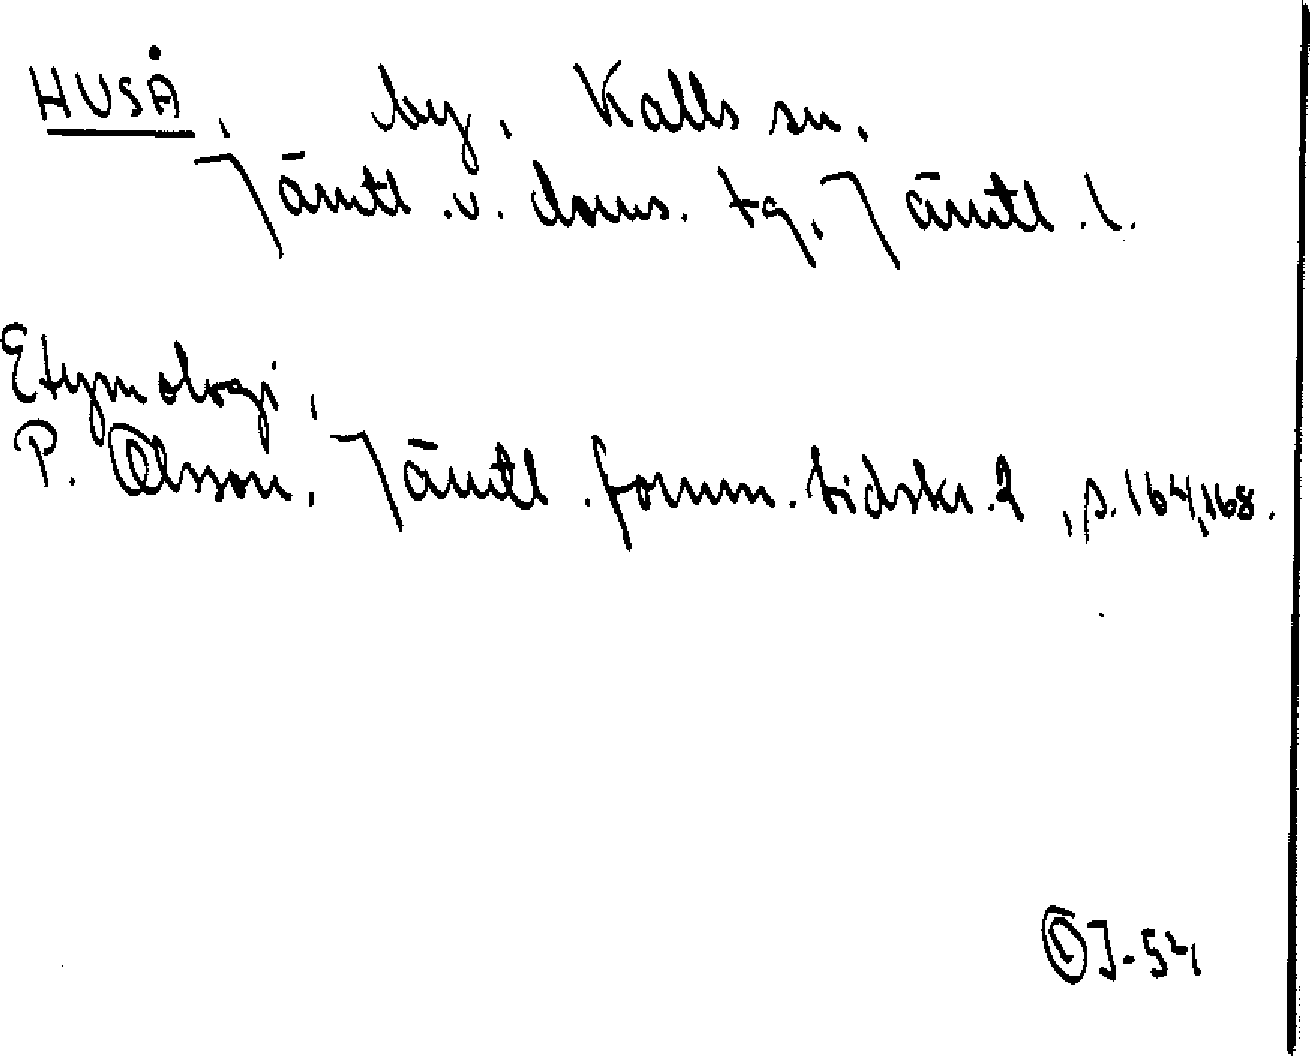 HUSÅ, by, Kalls sn,
Jämtl. v. doms. tg, Jämtl. l.
Etymologi,
P. Olsson, Jämtl. fornm. tidskr. 2, s. 164, 168.
OJ-54